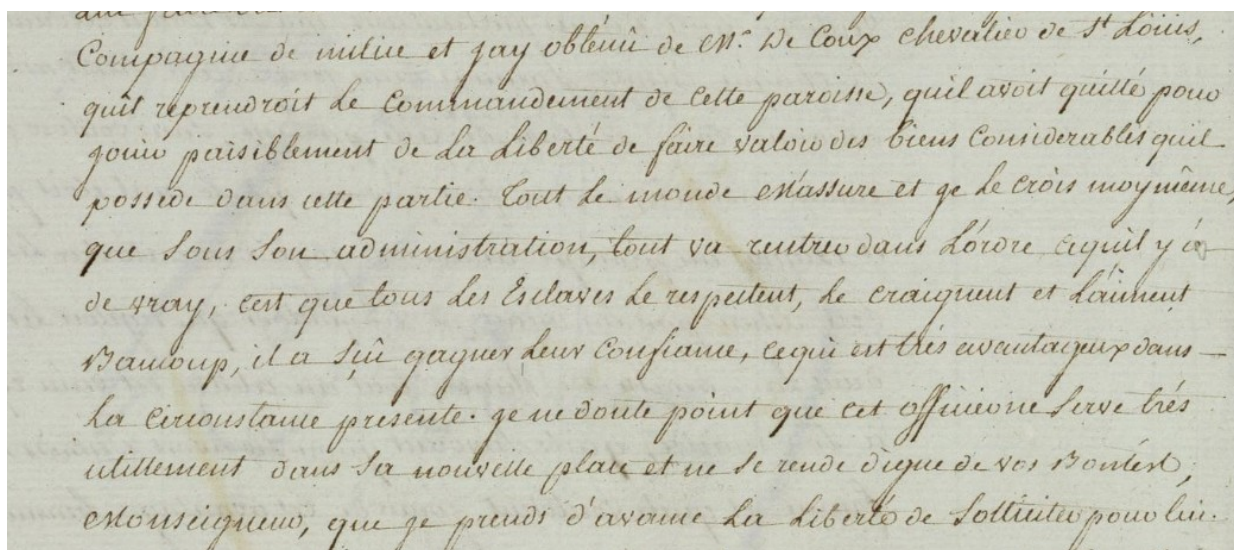 Compagnie de milice et jay obtenû de Mr. De Coux chevalier de St Loüis,
quil reprendroit le Commandement de Cette paroisse, quil avoit quitté pour
joüir paisiblement de La Liberté de faire valoir des biens Considerables quil
possede dans cette partie. Tout le monde m'assure et je le crois moy même,
que sous son administration, tout va rentrer dans L'ordre cequil y a
de vray, c'est que tous les Esclaves le respectent, le craignent et L'aiment
Baucoup, il a sçû gagner leur Confiance, cequi est très avantageux dans
La circonstance présente. je ne doute point que cet officier ne serve très
utillement dans sa nouvelle place et ne se rende digne de vos Bontés,
Monseigneur, que je prends d'avance La Liberté de solliciter pour lui.